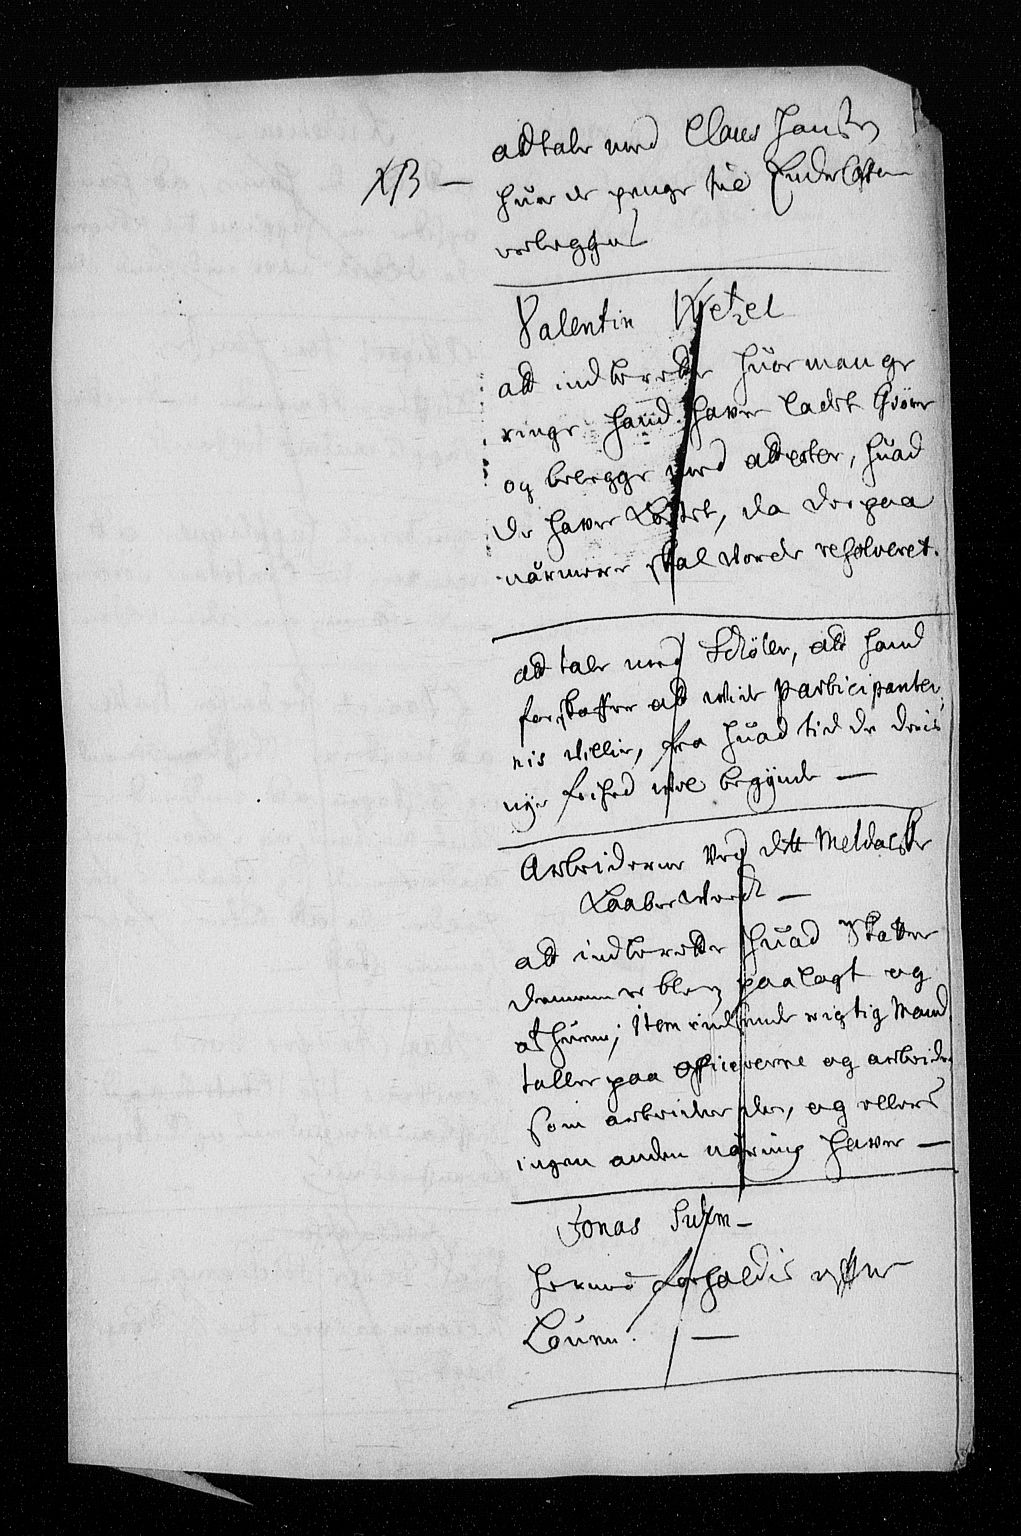 XB —
att tale med Claus Hansen
huor de penge til Enderlsten
verlegges
Valentin Wetzel
att indberette huor mange
ringe hand haver ladet Giøre
og belegge med attester, huad
de haver Kostet, da der paa
närmere skal worde resolveret.
att tale med Schøler, att hand
forskaffer att wide participanter
nis Villie, fra huad tid de deris
nye frihed wil begynde —
Arbeiderne Ved ditt Meldalske
Kaaberwerck —
att indberette huad Skatter
dennem er blen paalagt og
af huem; Item indsende rigtig Mand
taller paa officererne og arbeider
som arbeider der, og ellers
ingen anden näring haver —
Jonas Suhm —
hermed forholdis efter
Louen. —